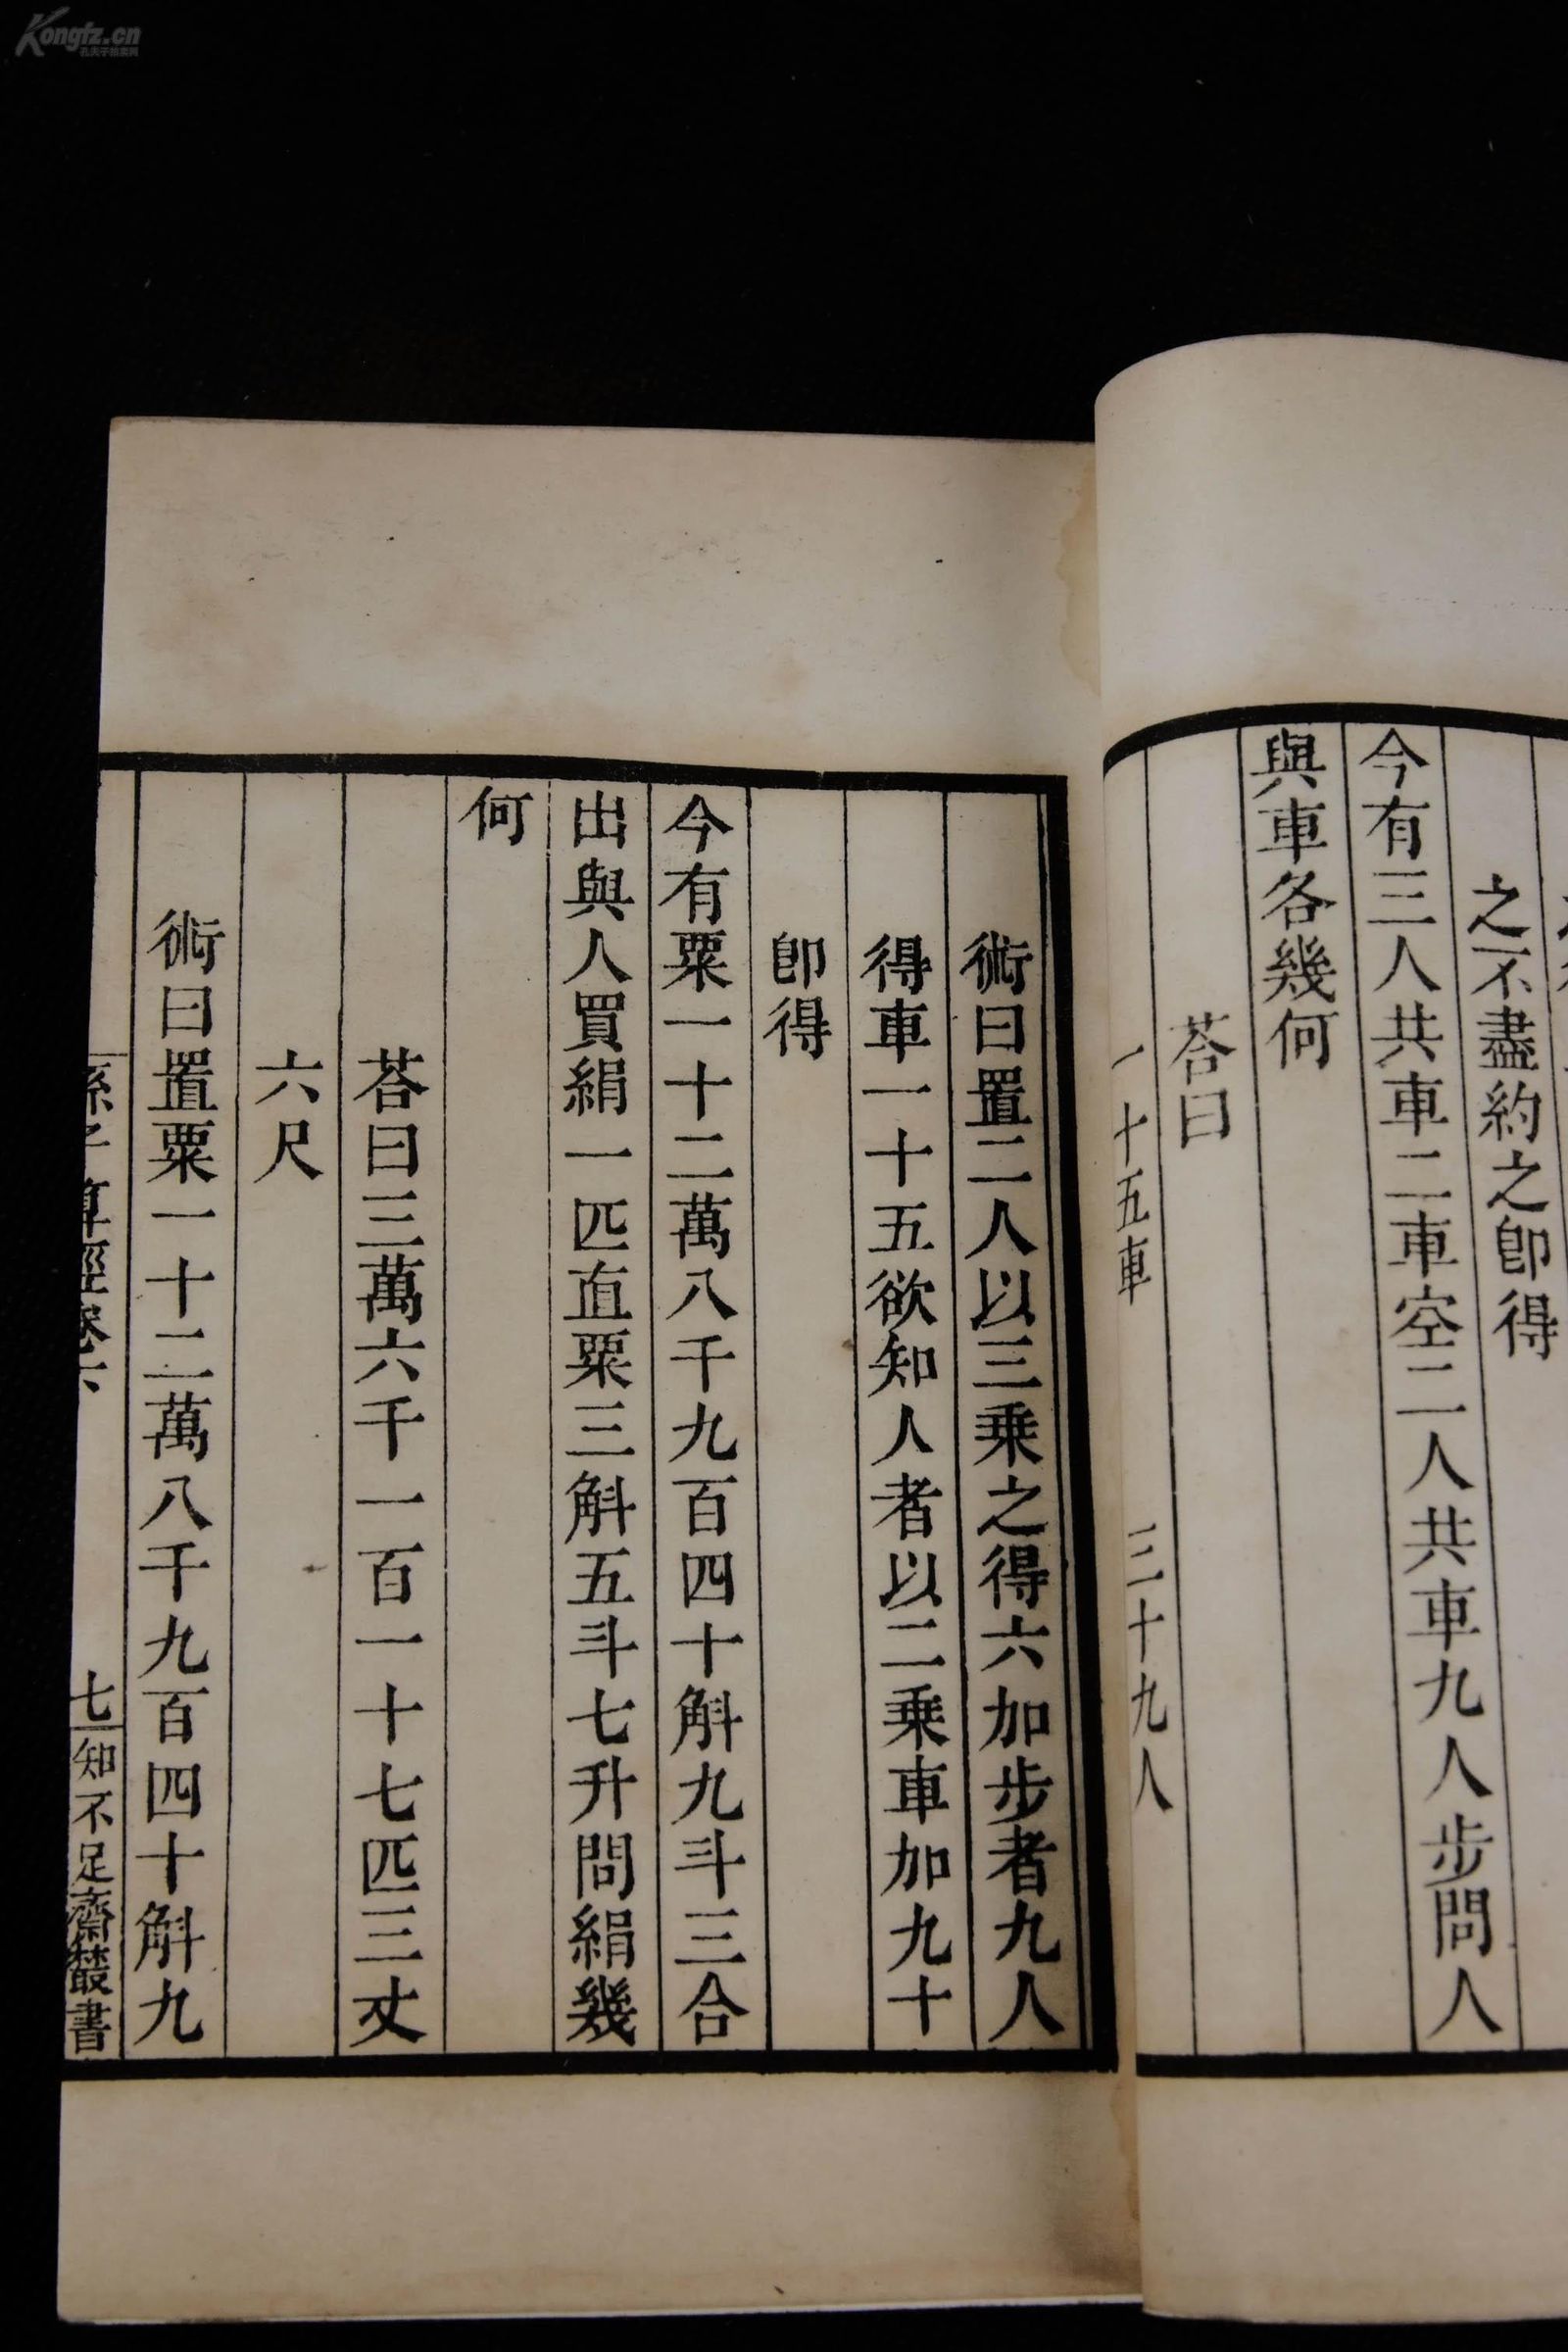 Kongfz.cn
孔夫子拍卖网
之不盡約之卽得
今有三人共車二車空二人共車九人步問人
與車各幾何
荅曰
一十五車　三十九人
術曰置二人以三乗之得六加步者九人
得車一十五欲知人者以二乗車加九十
卽得
今有粟一十二萬八千九百四十斛九斗三合
出與人買絹一匹直粟三斛五斗七升問絹幾
何
荅曰三萬六千一百一十七匹三丈
六尺
術曰置粟一十二萬八千九百四十斛九
七
知不足齋叢書